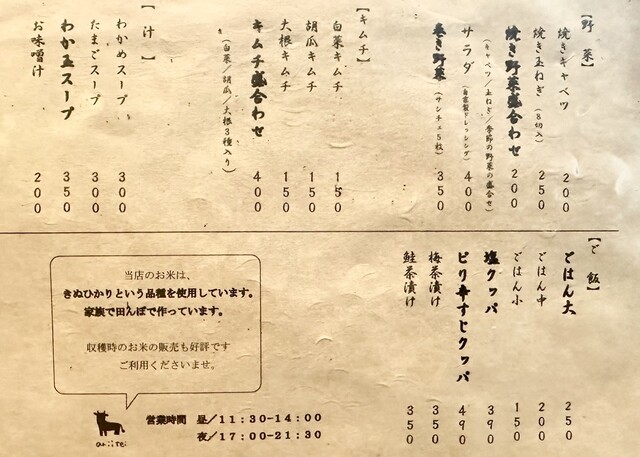 【野菜】
焼きキャベツ 200
焼き玉ねぎ(8切入) 250
焼き野菜盛合わせ 200
(キャベツ/玉ねぎ/季節の野菜の盛合せ)
サラダ(自家製ドレッシング) 400
巻き野菜(サンチュ5枚) 350
【キムチ】
白菜キムチ 150
胡瓜キムチ 150
大根キムチ 150
キムチ盛合わせ 400
(白菜/胡瓜/大根3種入り)
【汁】
わかめスープ 300
たまごスープ 300
わか玉スープ 350
お味噌汁 200
【ご飯】
ごはん大 250
ごはん中 200
ごはん小 150
塩クッパ 390
ピリ辛すじクッパ 490
梅茶漬け 350
鮭茶漬け 350
当店のお米は、
きぬひかりという品種を使用しています。
家族で田んぼで作っています。
収穫時のお米の販売も好評です
ご利用くださいませ。
営業時間 昼/11:30-14:00
夜/17:00-21:30